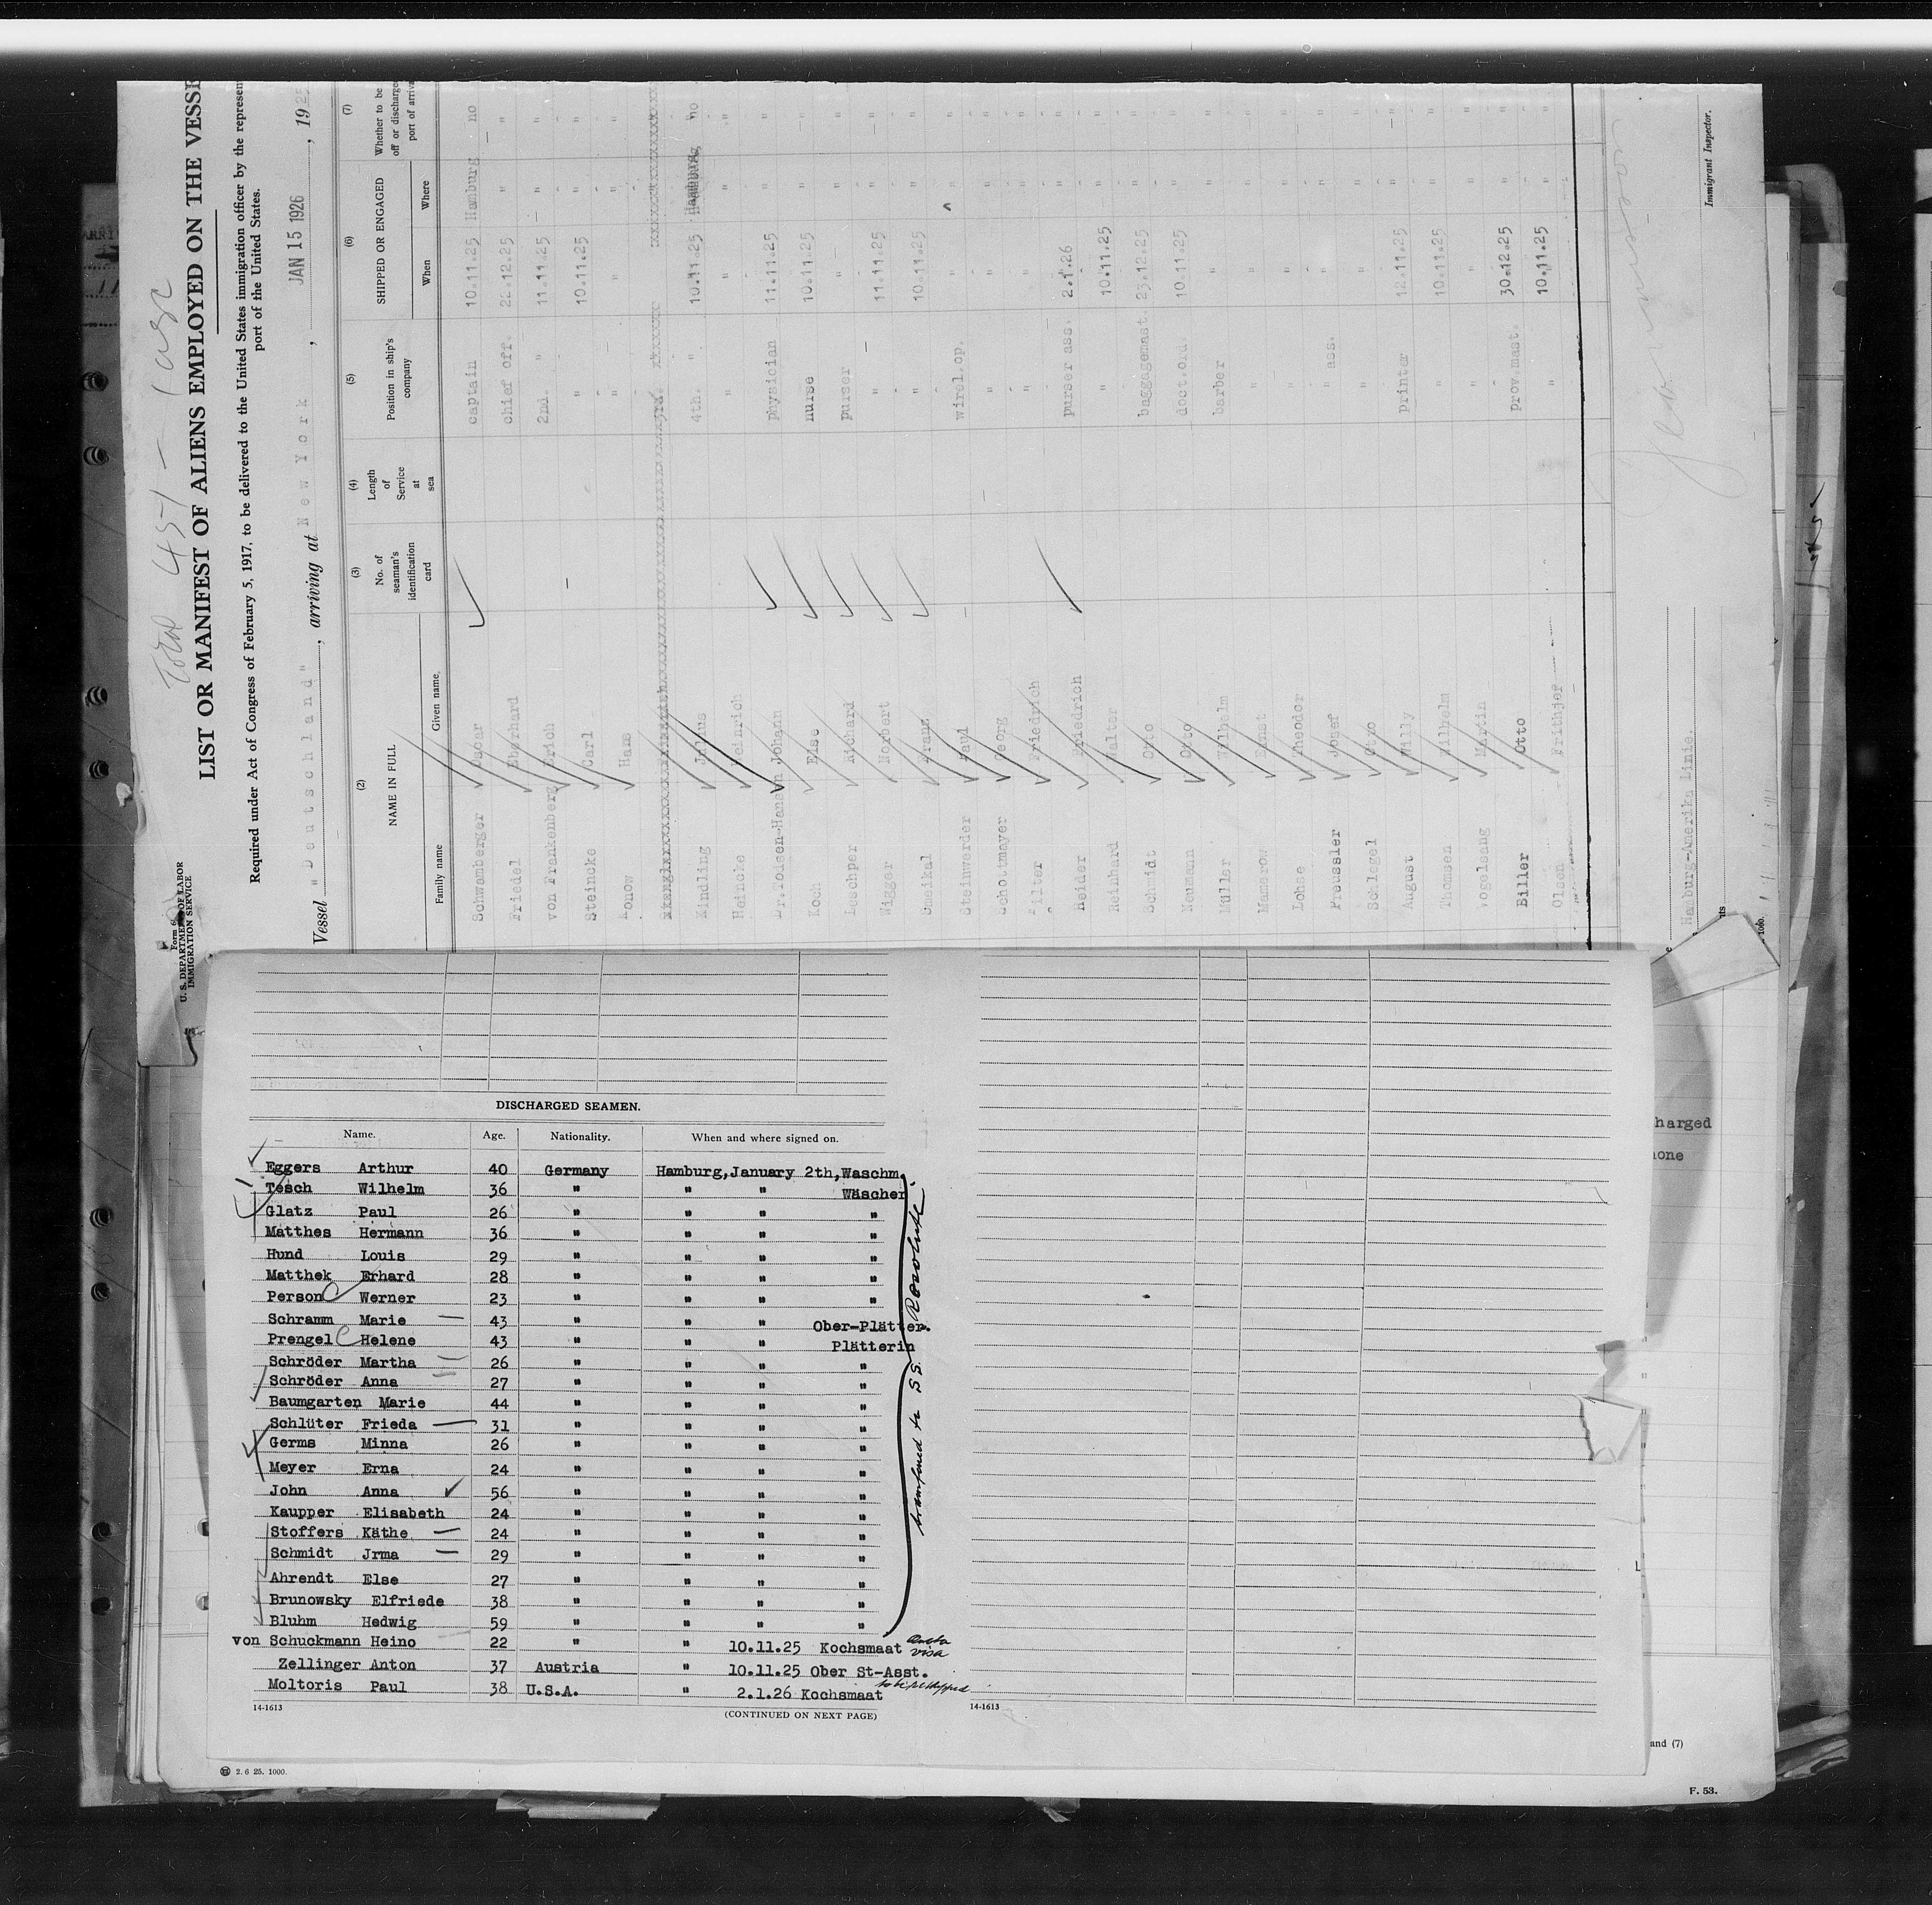 Total 451 –
Form 6
U. S. DEPARTMENT OF LABOR
IMMIGRATION SERVICE
LIST OR MANIFEST OF ALIENS EMPLOYED ON THE VESSE
Required under Act of Congress of February 5, 1917, to be delivered to the United States immigration officer by the represen
port of the United States.
Vessel "Deutschland", arriving at New York, JAN 15 1926, 19 25
(2) (3) (4) (5) (6) (7)
NAME IN FULL No. of seaman's identification card Length of Service at sea Position in ship's company SHIPPED OR ENGAGED Whether to be off or discharge port of arriva
Family name Given name When Where
Schwamberger Oscar captain 10.11.25 Hamburg no
Friedel Eberhard chief off. 22.12.25 " "
von Frankenberg Erich 2nd. " 11.11.25 " "
Steincke Carl " 10.11.25 " "
Hans " " " "
Kindling Julius 4th. " 10.11.25 Hamburg no
Heincke Heinrich " " " "
Dr.Tolsen-Hansen Johann physician 11.11.25 " "
Koch Else nurse 10.11.25 " "
Loschper Richard purser " " "
Wigger Norbert " 11.11.25 " "
Smeikal Franz " 10.11.25 " "
Steinwerder Paul wirel.op. " " "
Schottmayer Georg " " " "
Filter Friedrich " " " "
Heider Friedrich purser ass. 2.1.26 " "
Reinhard Walter " 10.11.25 " "
Schmidt Otto baggagemast. 23.12.25 " "
Neumann Otto doct.ord. 10.11.25 " "
Müller Wilhelm barber " " "
Mamerow Ernst " " " "
Lohse Theodor " " " "
Preussler Josef " ass. " " "
Schlegel Otto " " " "
August Willy printer 12.11.25 " "
Thomsen Wilhelm " 10.11.25 " "
Vogelsang Martin " " " "
Biller Otto prov.mast. 30.12.25 " "
Olsen Frithjof " 10.11.25 " "
Hamburg-Amerika Linie.
Immigrant Inspector.
DISCHARGED SEAMEN.
Name. Age. Nationality. When and where signed on.
Eggers Arthur 40 Germany Hamburg,January 2th,Waschm.
Tesch Wilhelm 36 " " " Wäscher
Glatz Paul 26 " " " "
Matthes Hermann 36 " " " "
Hund Louis 29 " " " "
Matthek Erhard 28 " " " "
Person Werner 23 " " " "
Schramm Marie 43 " " " Ober-Plätter.
Prengel Helene 43 " " " Plätterin
Schröder Martha 26 " " " "
Schröder Anna 27 " " " "
Baumgarten Marie 44 " " " "
Schlüter Frieda 31 " " " "
Germs Minna 26 " " " "
Meyer Erna 24 " " " "
John Anna 56 " " " "
Kaupper Elisabeth 24 " " " "
Stoffers Käthe 24 " " " "
Schmidt Jrma 29 " " " "
Ahrendt Else 27 " " " "
Brunowsky Elfriede 38 " " " "
Bluhm Hedwig 59 " " " "
von Schuckmann Heino 22 " " 10.11.25 Kochsmaat visa
Zellinger Anton 37 Austria " 10.11.25 Ober St-Asst.
Moltoris Paul 38 U.S.A. " 2.1.26 Kochsmaat to be reshipped
transfered to SS. Resolute
14-1613
(CONTINUED ON NEXT PAGE)
14-1613
2. 6 25. 1000.
harged
none
and (7)
F. 53.